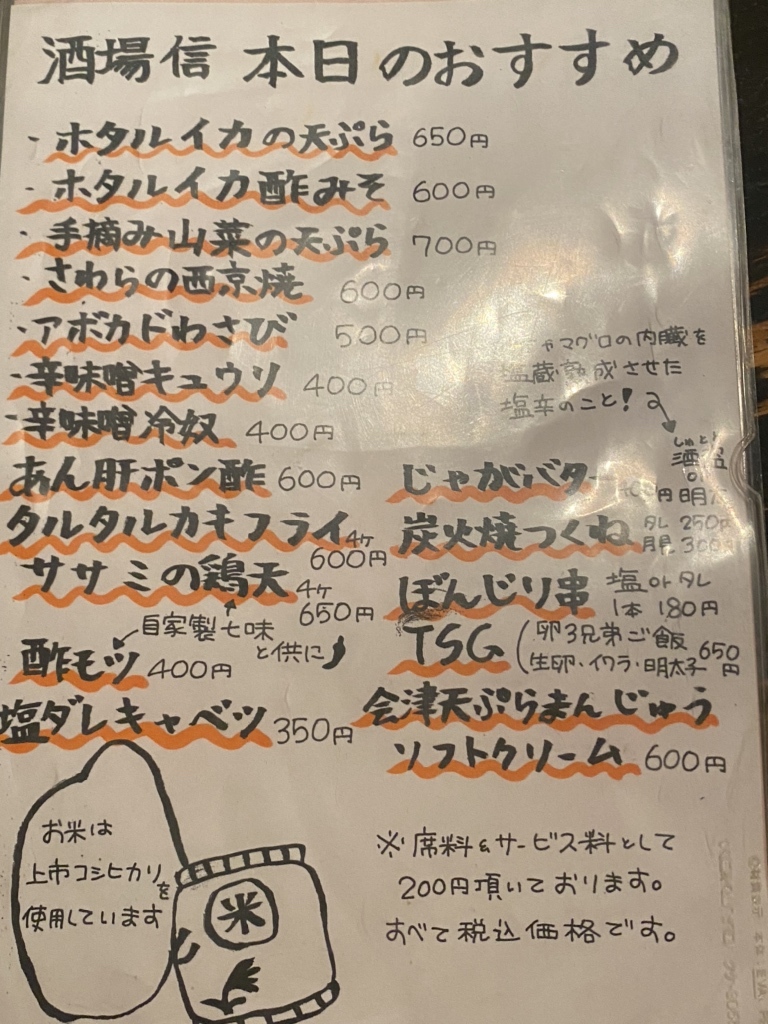 酒場信 本日のおすすめ
・ホタルイカの天ぷら 650円
・ホタルイカ酢みそ 600円
・手摘み山菜の天ぷら 700円
・さわらの西京焼 600円
・アボカドわさび 500円
・辛味噌キュウリ 400円
・辛味噌冷奴 400円
あん肝ポン酢 600円
タルタルカキフライ 4ヶ 600円
ササミの鶏天 4ヶ 650円
自家製七味と供に
酢モツ 400円
塩ダレキャベツ 350円
やマグロの内臓を
塩蔵熟成させた
塩辛のこと!
じゃがバター 円
or
炭火焼つくね タレ 250円
月見 300
ぼんじり串 塩orタレ
1本 180円
TSG (卵3兄弟ご飯
生卵・イクラ・明太子 650円
会津天ぷらまんじゅう
ソフトクリーム 600円
お米は
上市コシヒカリを
使用しています
米
※席料&サービス料として
200円頂いております。
すべて税込価格です。